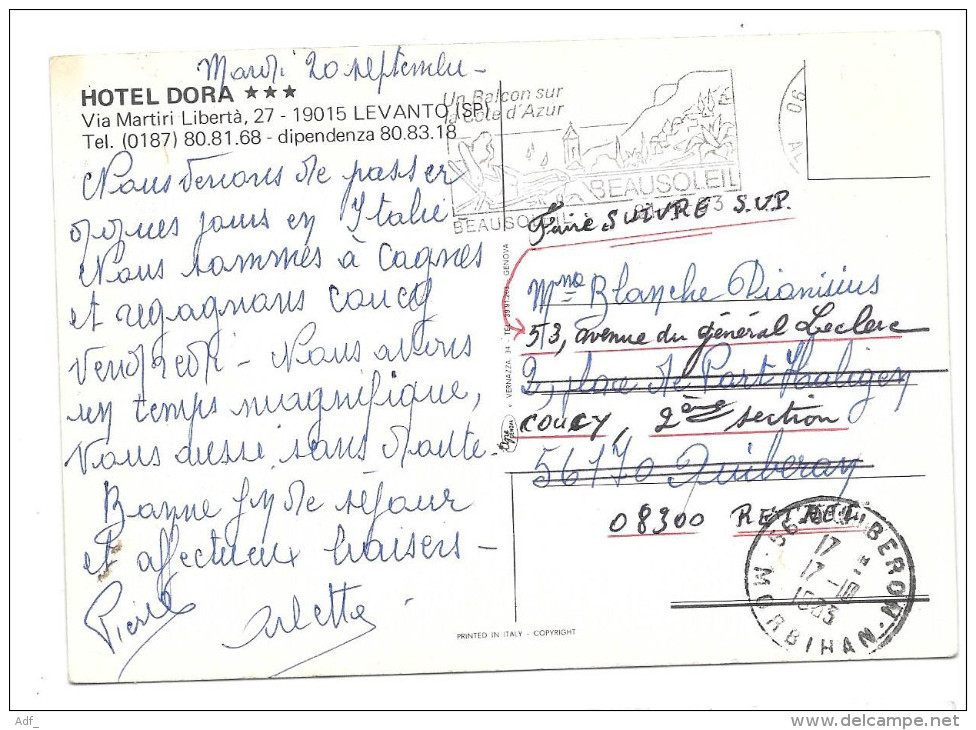 Mardi 20 septembre -
HOTEL DORA ★★★
Via Martiri Libertà, 27 - 19015 LEVANTO (SP)
Tel. (0187) 80.81.68 - dipendenza 80.83.18
Nous venons de passer
qques jours en Italie
Nous sommes à Cagnes
et regagnons Coucy
vendredi - Nous avons
un temps magnifique,
Vous aussi sans doute.
Bonne fin de séjour
et affectueux baisers -
Pierre Arlette
Un Balcon sur
la Côte d'Azur
BEAUSOLEIL
BEAUSOLEIL
06 AL
Faire SUIVRE S.V.P.
Mme Blanche Dionisius
53, avenue du général Leclerc
2, place de Port Haliguen
COUCY, 2ème section
56170 Quiberon
08300 RETHEL
56 QUIBERON
17 H
17 -10
1983
MORBIHAN
V. VERNAZZA 34 GENOVA
PRINTED IN ITALY - COPYRIGHT
Adf_
delcampe.net